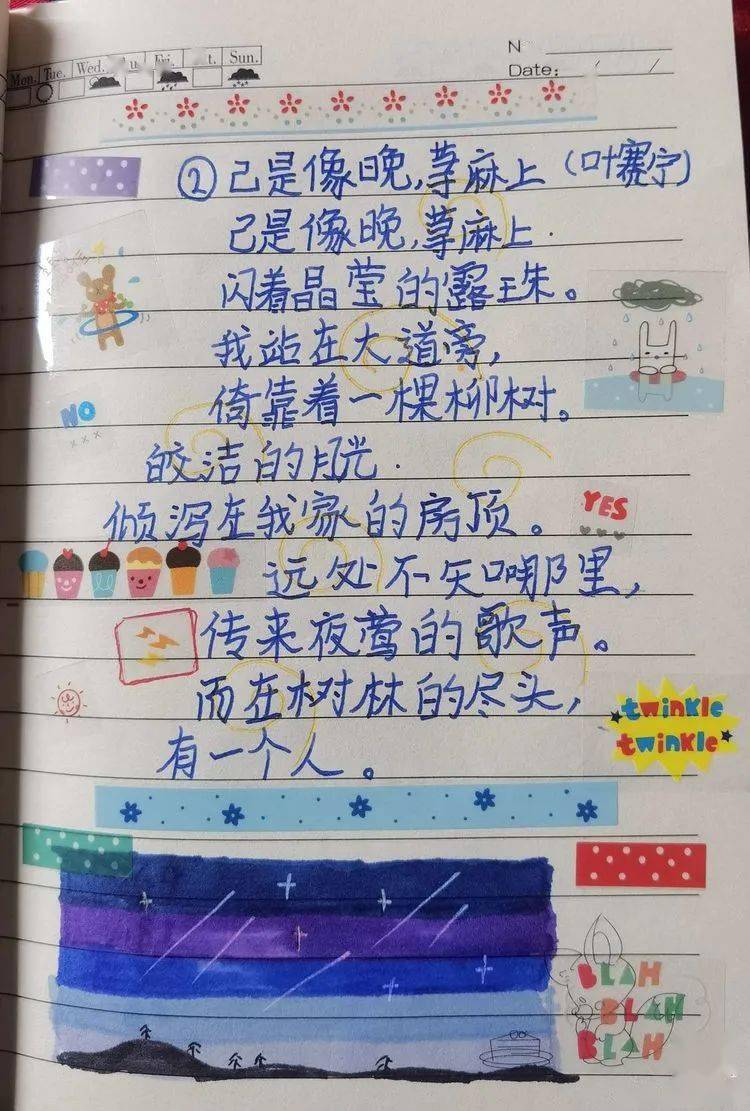 Mon. Tue. Wed. Fri. Sun.
N
Date: / /
②己是像晚,荨麻上(叶赛宁)
己是像晚,荨麻上.
闪着晶莹的露珠。
我站在大道旁,
倚靠着一棵柳树。
NO
×××
皎洁的月光.
倾泻在我家的房顶。
YES
远处不知哪里,
传来夜莺的歌声。
而在树林的尽头,
twinkle
twinkle
有一个人。
BLAH
BLAH
BLAH